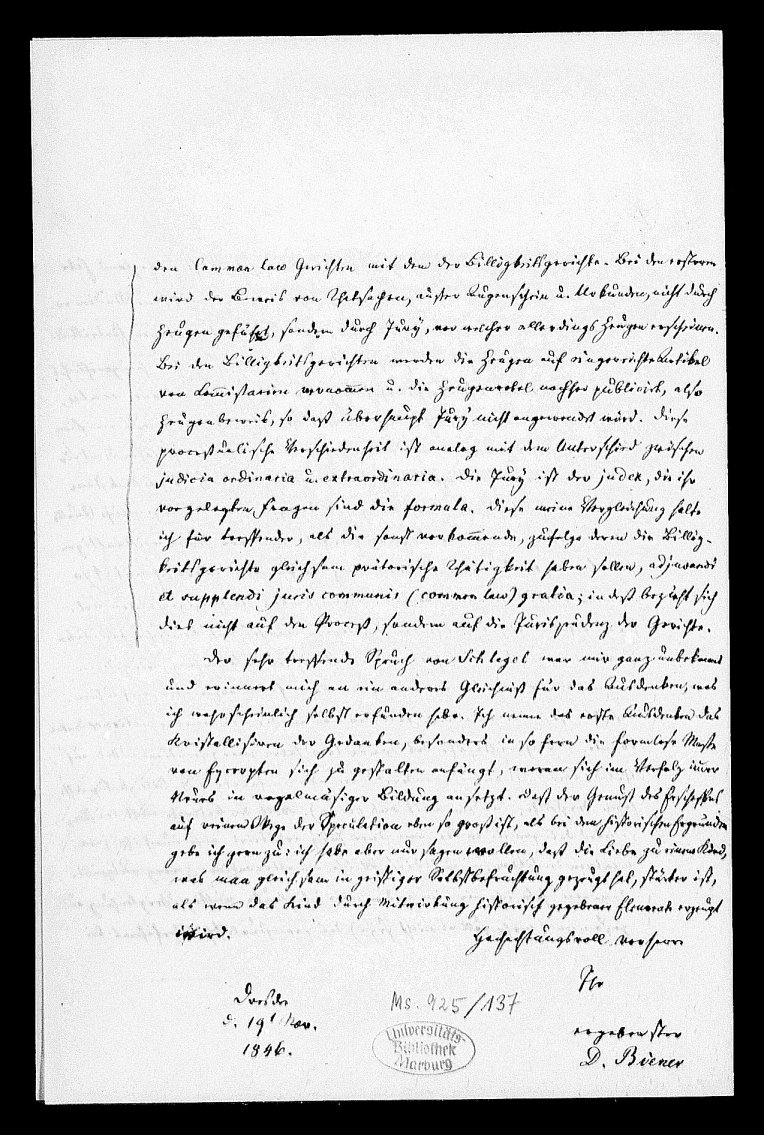 den Common law Gerichten mit dem der Billigkeitsgerichte. Bei den ersteren
wird der Beweis von Thatsachen, außer Augenschein u. Urkunden, nicht durch
Zeugen geführt, sondern durch Jury, vor welcher allerdings Zeugen erscheinen.
Bei den Billigkeitsgerichten werden die Zeugen auf eingereichte Artikel
von Commissarien vernommen u. die Zeugenrotel nachher publicirt, also
Zeugenbeweis, so daß überhaupt Jury nicht angewendet wird. Diese
processualische Verschiedenheit ist analog mit dem Unterschied zwischen
judicia ordinaria u. extraordinaria. Die Jury ist der judex, die ihr
vorgelegten Fragen sind die formula. Diese meine Vergleichung halte
ich für treffender, als die sonst vorkommende, zufolge deren die Billig-
keitsgerichte gleichsam prätorische Thätigkeit haben sollen, adjuvandi
et supplendi juris communis (common law) gratia; indeß bezieht sich
dies nicht auf den Proceß, sondern auf die Jurisprudenz der Gerichte.
Der sehr treffende Spruch von Schlegel war mir ganz unbekannt
und erinnert mich an ein anderes Gleichniß für das Ausdenken, was
ich wahrscheinlich selbst erfunden habe. Ich nenne das erste Ausdenken das
Kristallisiren der Gedanken, besonders in so fern die formlose Masse
von Excerpten sich zu gestalten anfängt, woran sich im Verfolg immer
Neues in regelmäsiger Bildung ansetzt. Daß der Genuß des Erschaffens
auf reinem Wege der Speculation eben so groß ist, als bei dem historischen Ergründen
gebe ich gern zu: ich habe aber nur sagen wollen, daß die Liebe zu einem Kind,
was man gleichsam in geistiger Selbstbefruchtung gezeugt hat, stärker ist,
als wenn das Kind durch Mitwirkung historisch gegebener Elemente erzeugt
wird.
Hochachtungsvoll
Ihr
Dresden
d. 19t Nov.
1846.
Ms. 925/137
Universitäts-
Bibliothek
Marburg
ergebenster
D. Biener